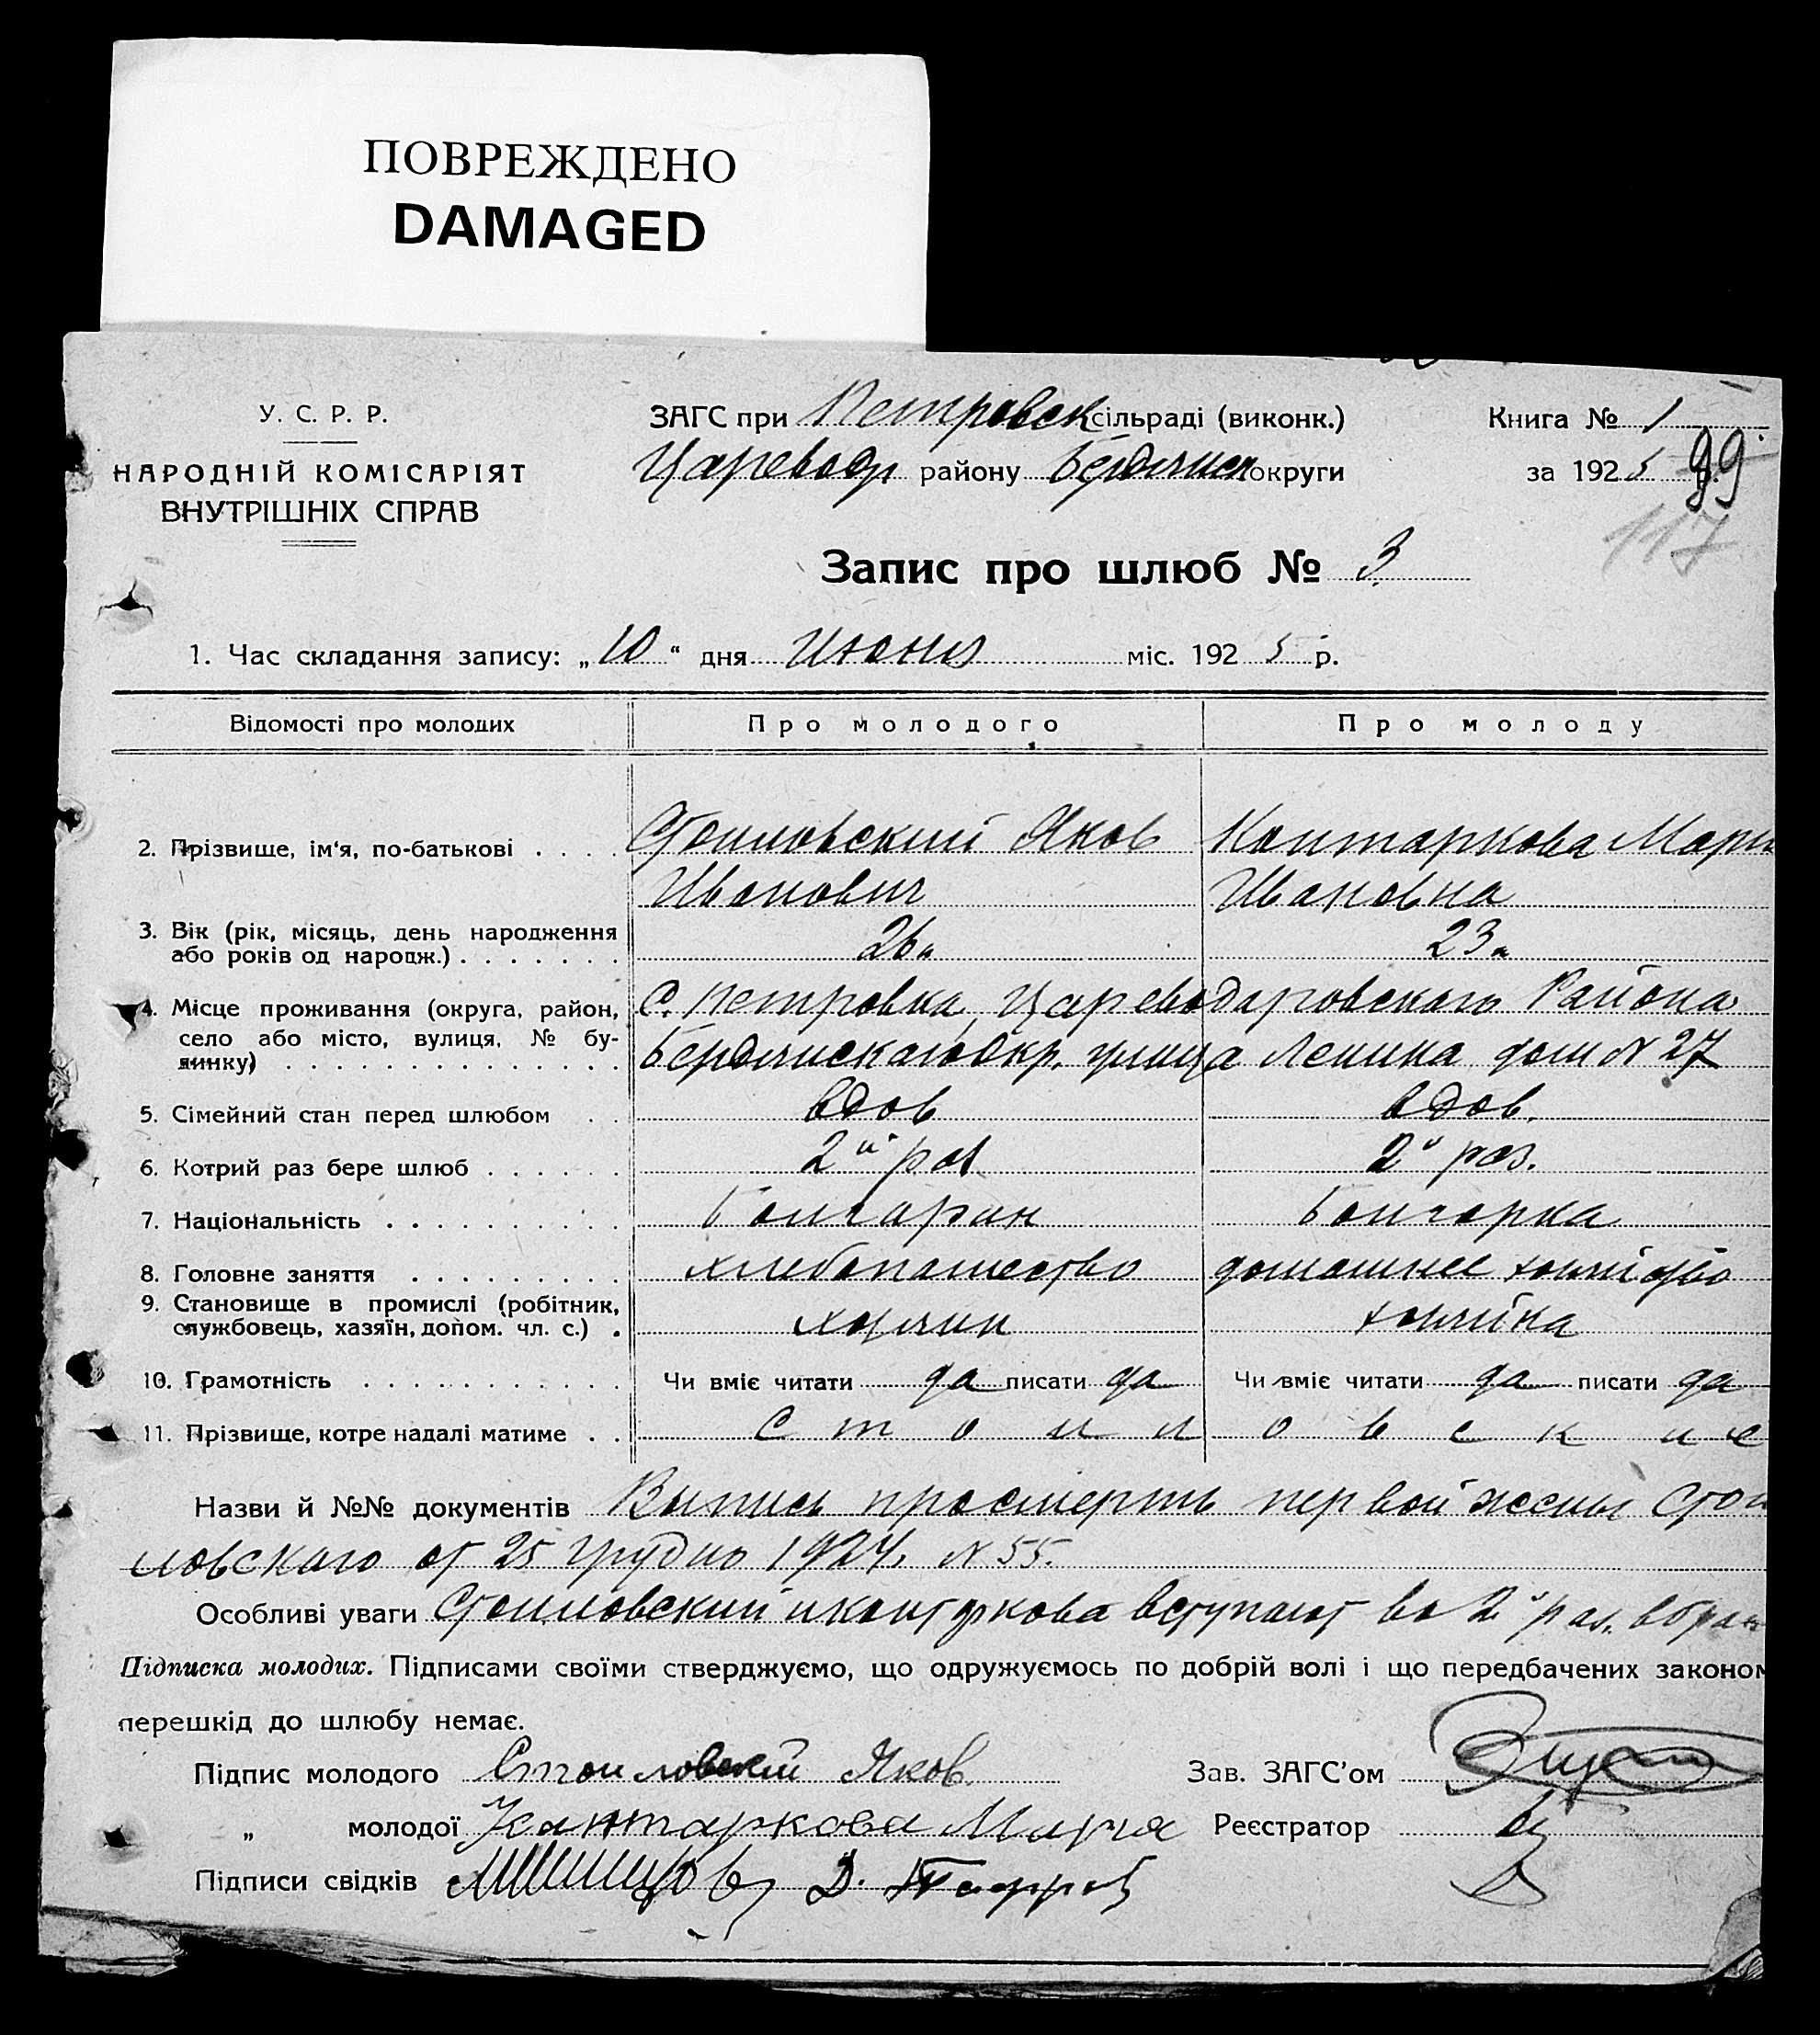 ПОВРЕЖДЕНО
DAMAGED
У. С. Р. Р.
НАРОДНІЙ КОМІСАРІЯТ
ВНУТРІШНІХ СПРАВ
ЗАГС при Петровск сільраді (виконк.)
Царевод районy Бердянск округи
Книга № 1
за 1925 р.
99
117
Запис про шлюб № 3
1. Час складання запису: „10“ дня Июня міс. 1925 р.
Відомості про молодих Про молодого Про молоду
2. Прізвище, ім'я, по-батькові Стоиловский Яков Контаркова Мари
Иванович Ивановна
3. Вік (рік, місяць, день народження
або років од народж.) 26 л 23 л
4. Місце проживання (округа, район, С. Петровка, Цареводаровского Района
село або місто, вулиця, № бу-
динку) Бердянскаго Окр. улица Ленина дом № 27
5. Сімейний стан перед шлюбом вдов вдов.
6. Котрий раз бере шлюб 2й раз 2й раз.
7. Національність Болгарин Болгарка
8. Головне заняття хлебопашество домашнее хозяйство
9. Становище в промислі (робітник,
службовець, хазяїн, допом. чл. с.) хозяин хозяйка
10. Грамотність Чи вміє читати да писати да Чи вміє читати да писати да
11. Прізвище, котре надалі матиме Стоиловские
Назви й №№ документів Выпись про смерть первой жены Стои
ловскаго от 25 грудно 1924. № 55.
Особливі уваги Стоиловский и Контаркова вступают во 2й раз. в брак
Підписка молодих. Підписами своїми стверджуємо, що одружуємось по добрій волі і що передбачених законом
перешкід до шлюбу немає.
Підпис молодого Стоиловский Яков Зав. ЗАГС'ом
„ молодої Кантаркова Мария Реєстратор
Підписи свідків Д.